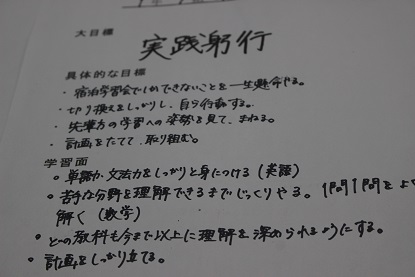 大目標
実践躬行
具体的な目標
・宿泊学習会でしかできないことを一生懸命やる。
・切り換えをしっかりし、自ら行動する。
・先輩方の学習への姿勢を見て、まねる。
・計画をたてて、取り組む。
学習面
・単語力・文法力をしっかりと身につける（英語）
・苦手な分野を理解できるまでじっくりやる。1問1問をよ
解く（数学）
・どの教科も今まで以上に理解を深められるようにする。
・計画をしっかり立てる。